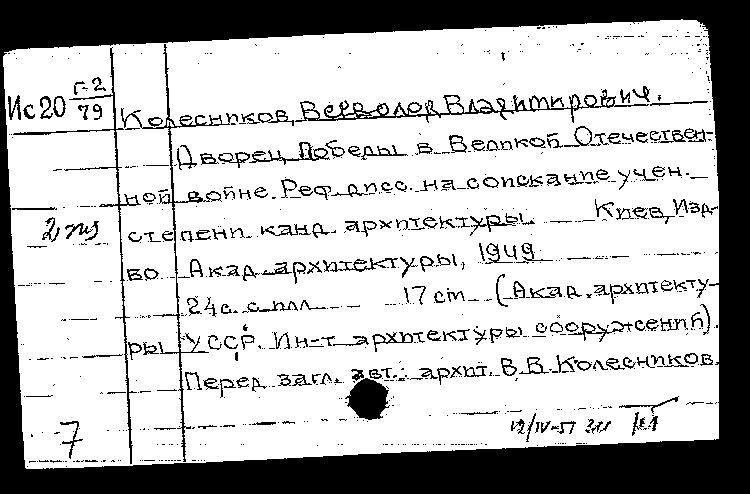 Ис20 Г-2/79
Колесников, Всеволод Владимирович.
Дворец Победы в Великой Отечествен-
ной войне. Реф. дисс. на соискание учен.
2 экз степени канд. архитектуры. Киев, Изд-
во Акад. архитектуры, 1949
24с. с илл. 17 cm (Акад. архитекту-
ры УССР. Ин-т архитектуры сооружений).
Перед загл. авт.: архит. В.В. Колесников.
7
12/IV-51